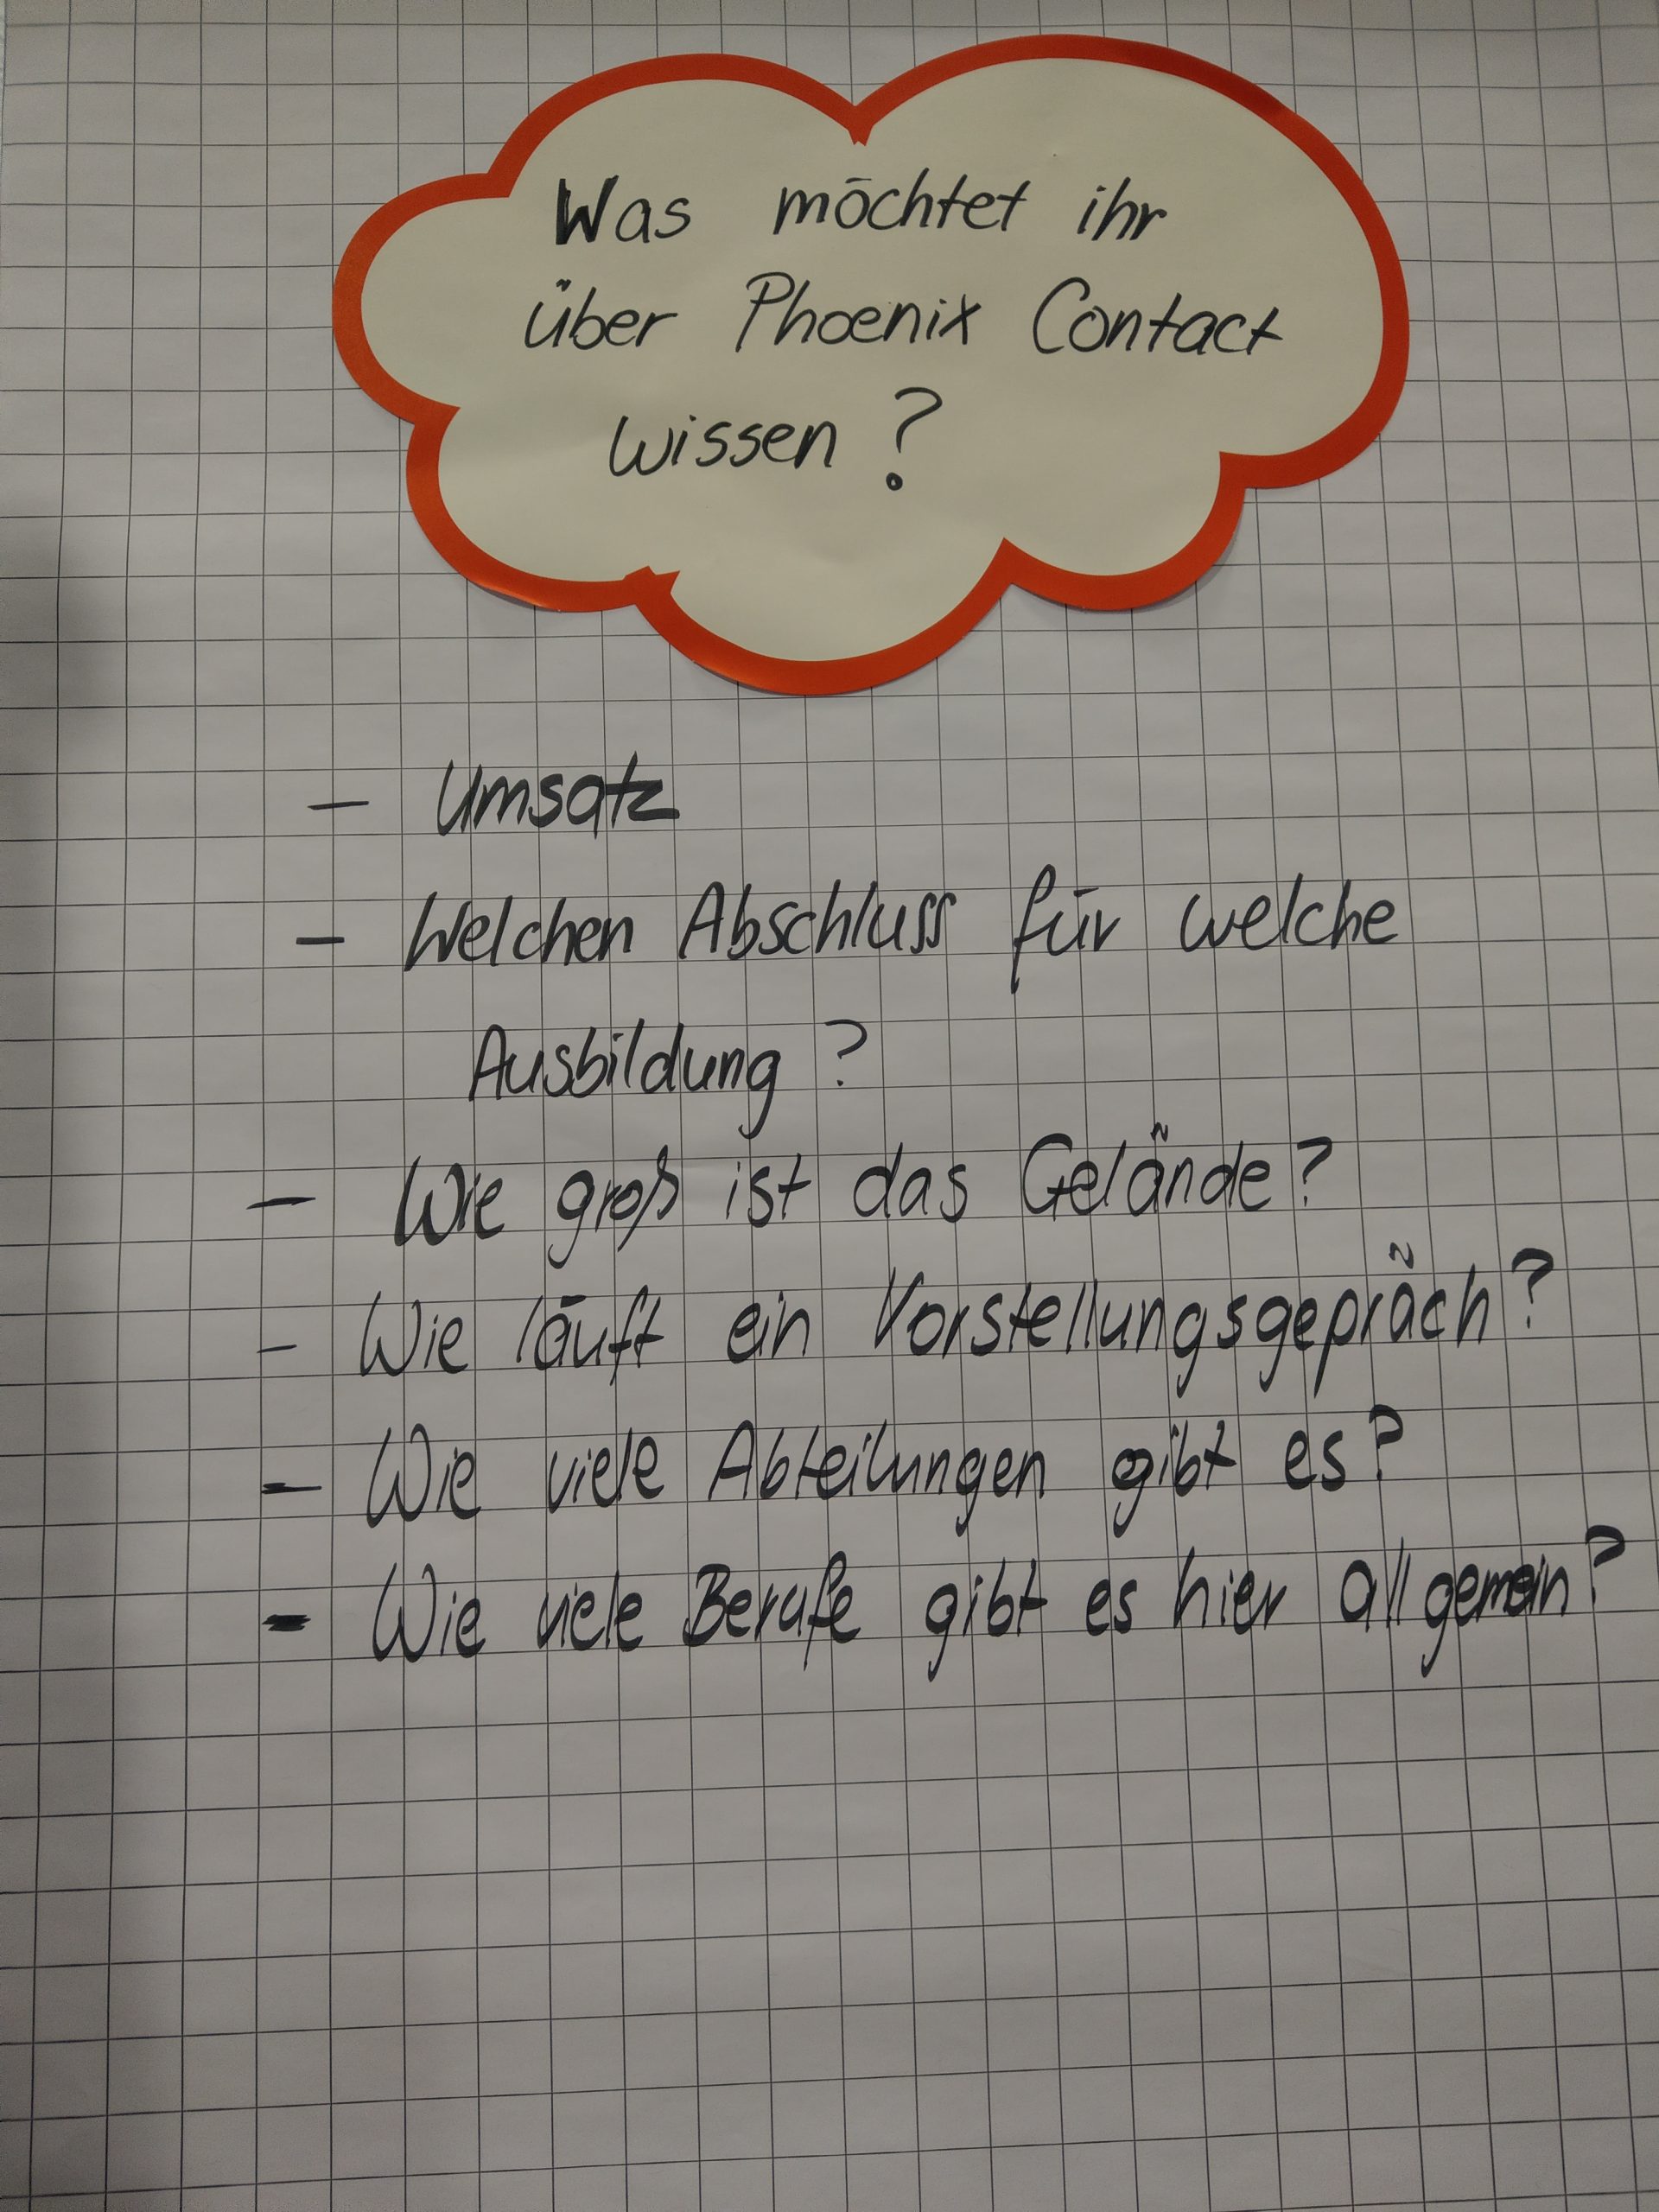 Was möchtet ihr
über Phoenix Contact
wissen?
– Umsatz
– Welchen Abschluss für welche
Ausbildung?
– Wie groß ist das Gelände?
– Wie läuft ein Vorstellungsgepräch?
– Wie viele Abteilungen gibt es?
– Wie viele Berufe gibt es hier allgemein?